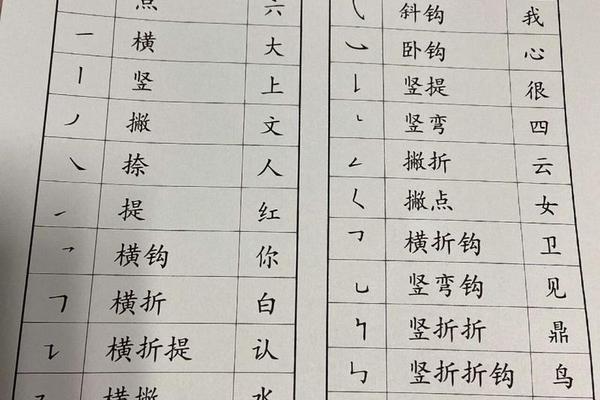 点 六
㇐ 横 大
㇑ 竖 上
㇓ 撇 文
㇏ 捺 人
㇀ 提 红
㇖ 横钩 你
㇕ 横折 白
㇊ 横折提 认
㇇ 横撇 水
㇂ 斜钩 我
㇃ 卧钩 心
㇙ 竖提 很
㇄ 竖弯 四
㇜ 撇折 云
㇛ 撇点 女
㇆ 横折钩 卫
㇟ 竖弯钩 见
㇞ 竖折折 鼎
㇉ 竖折折钩 鸟